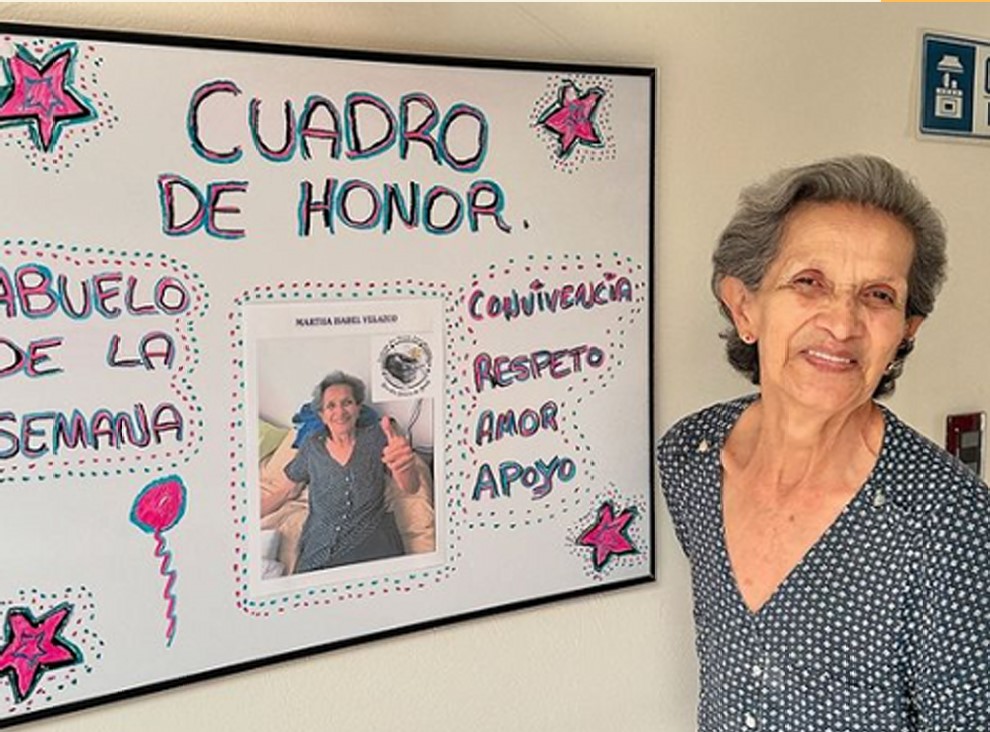 CUADRO
DE HONOR.
ABUELO
DE LA
SEMANA
MARTHA ISABEL VELAZCO
CONVIVENCIA
RESPETO
AMOR
APOYO